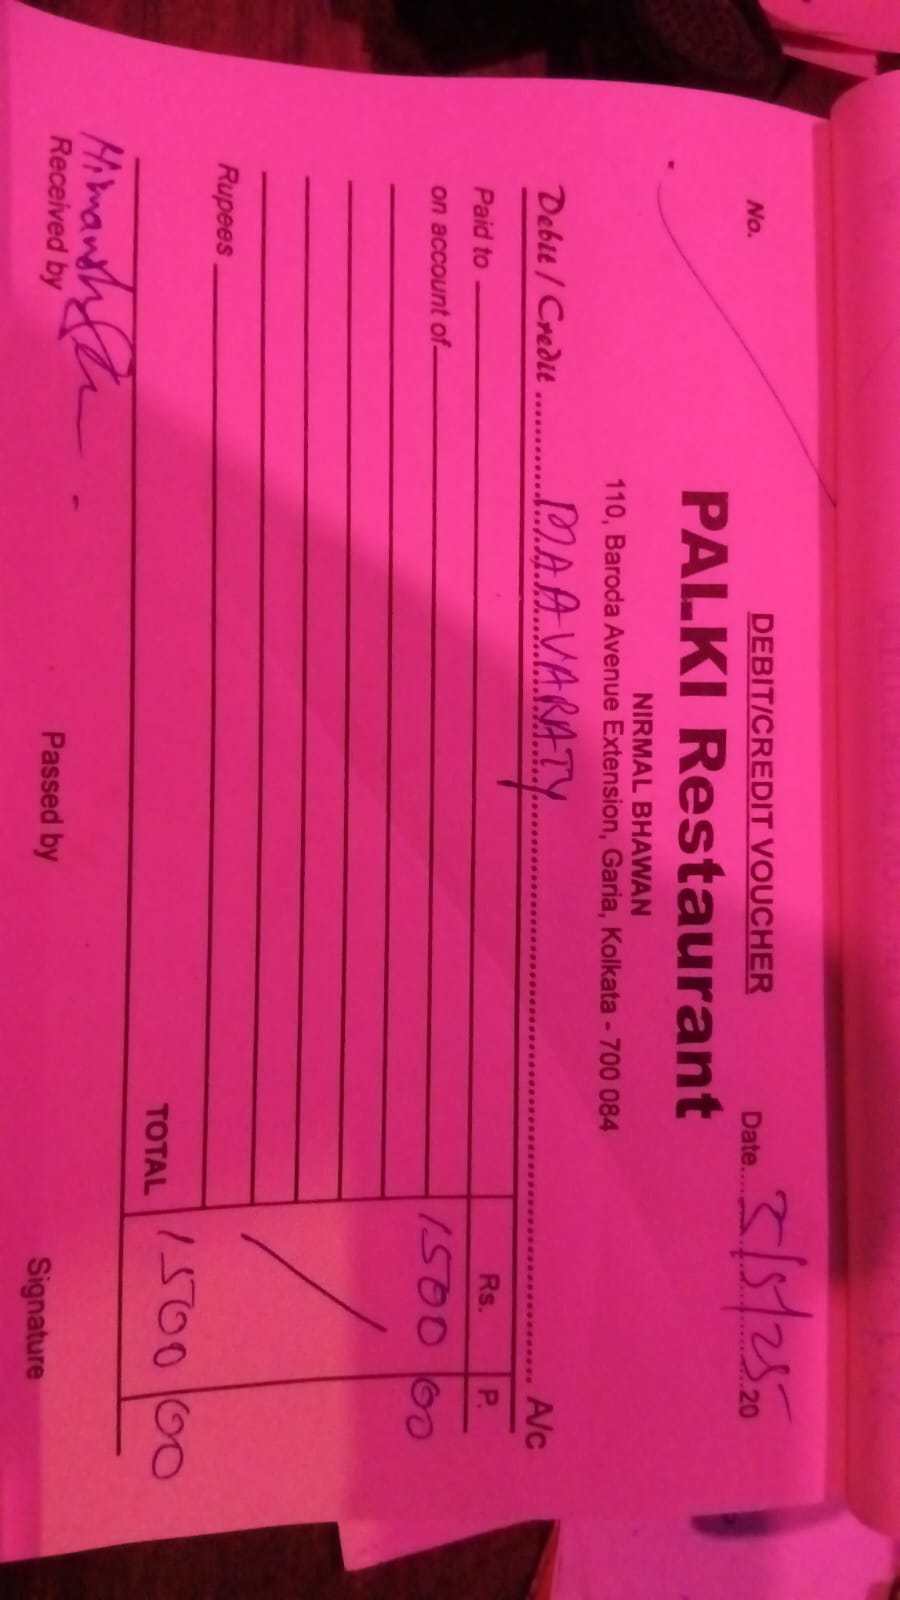 DEBIT/CREDIT VOUCHER
No.
Date.....3/5/25.....20
PALKI Restaurant
NIRMAL BHAWAN
110, Baroda Avenue Extension, Garia, Kolkata - 700 084
Debit / Credit ..........MAA VARATY.......... A/c
Paid to
Rs. P.
on account of
1500 00
Rupees
TOTAL 1500 00
Himanshu
Received by
Passed by
Signature